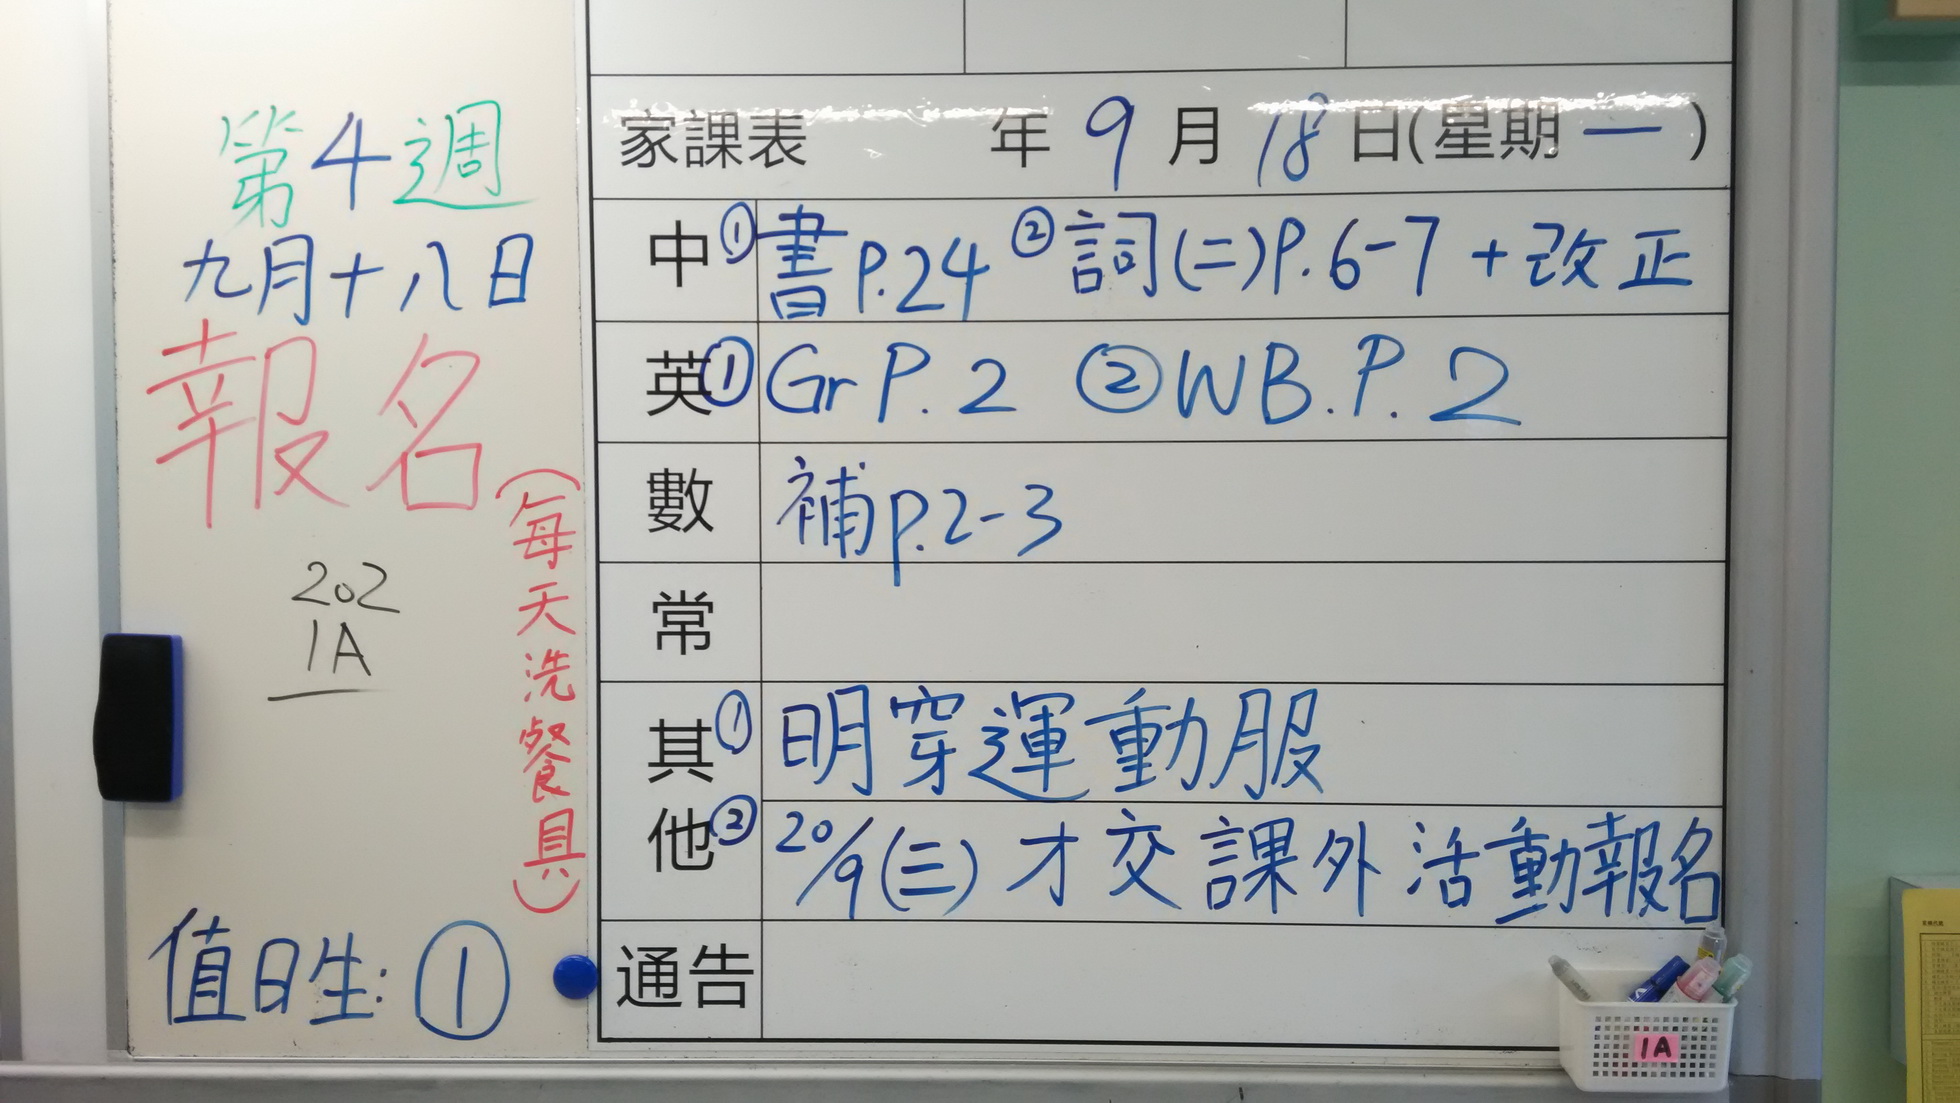 第4週
九月十八日
報名
(每天洗餐具)
202
1A
值日生: ①
家課表 年 9 月 18 日(星期 一 )
中 ①書 P.24 ②詞(二)P.6-7 + 改正
英 ①Gr P. 2 ②WB. P. 2
數 補 p.2-3
常
其他 ①明穿運動服
②20/9(三) 才交課外活動報名
通告
1A